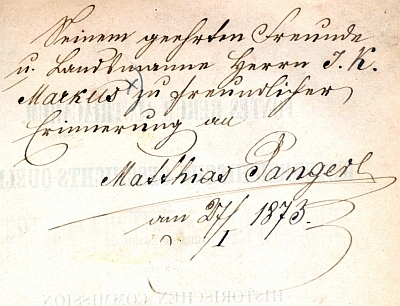 Seinem geehrten Freunde
u. Landsmanne Herrn J. K.
Markus zu freundlicher
Erinnerung an
Matthias Pangerl
am 27/I 1873.
HISTORISCHEN COMMISSION